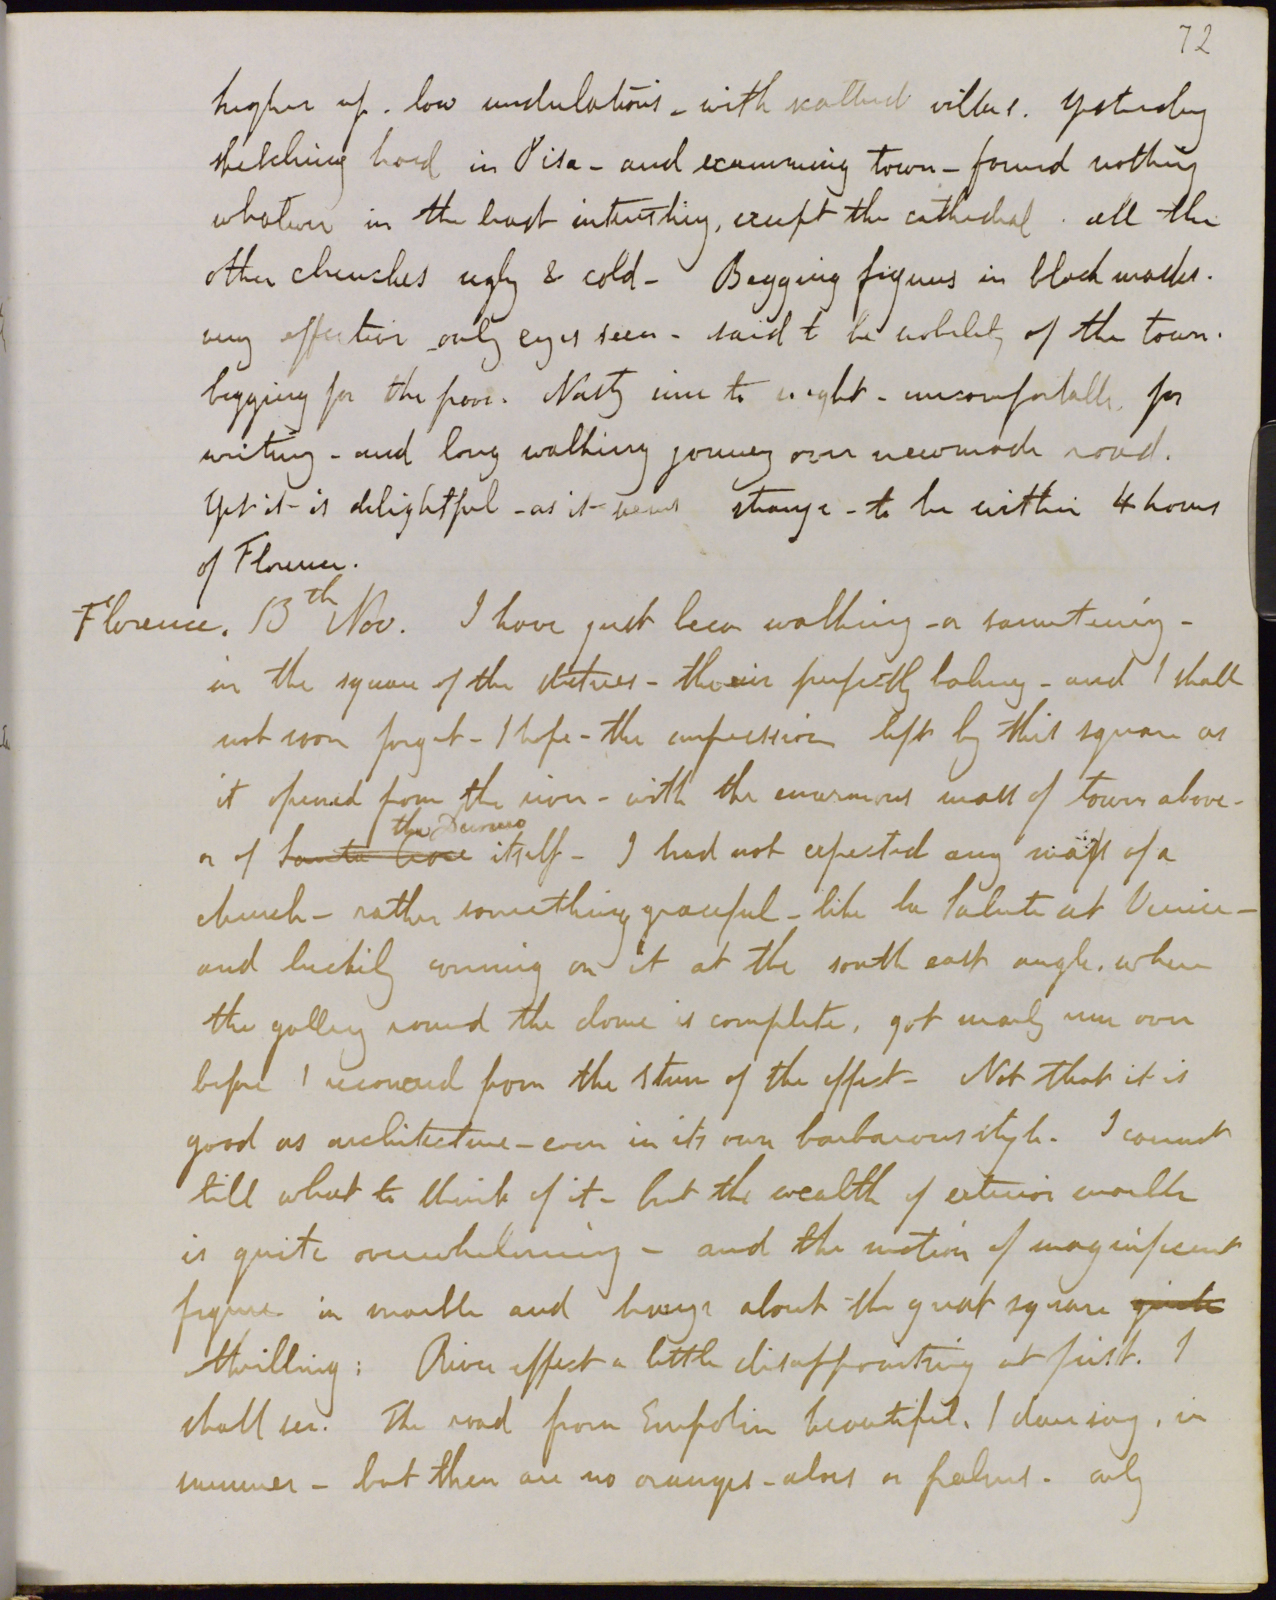 72
higher up. low undulations - with scattered villas. Yesterday
sketching hard in Pisa - and examining town - found nothing
whatever in the least interesting, except the cathedral. all the
other churches ugly & cold - Begging figures in black masks.
very effective only eyes seen - said to be nobility of the town.
begging for the poor. Nasty inn to night - uncomfortable for
writing - and long walking journey over newmade road.
Yet it is delightful - as it seems strange - to be within 4 hours
of Florence.
Florence. 13th Nov. I have just been walking - or sauntering -
in the square of the statues - the air perfectly balmy - and I shall
not soon forget - I hope - the impression left by this square as
it opened from the river - with the enormous mass of tower above -
the Duomo
or of Santa Croce itself - I had not expected any mass of a
church - rather something graceful - like La Salute at Venice -
and luckily coming on it at the south east angle. where
the gallery round the dome is complete, got nearly run over
before I recovered from the stun of the effect - Not that it is
good as architecture - even in its own barbarous style. I cannot
tell what to think of it - but the wealth of exterior marble
is quite overwhelming - and the notion of magnificent
figures in marble and bronze about the great square quite
thrilling: River effect a little disappointing at first. I
shall see. The road from Empolin beautiful, I dare say, in
summer - but there are no oranges - aloes or palms. only